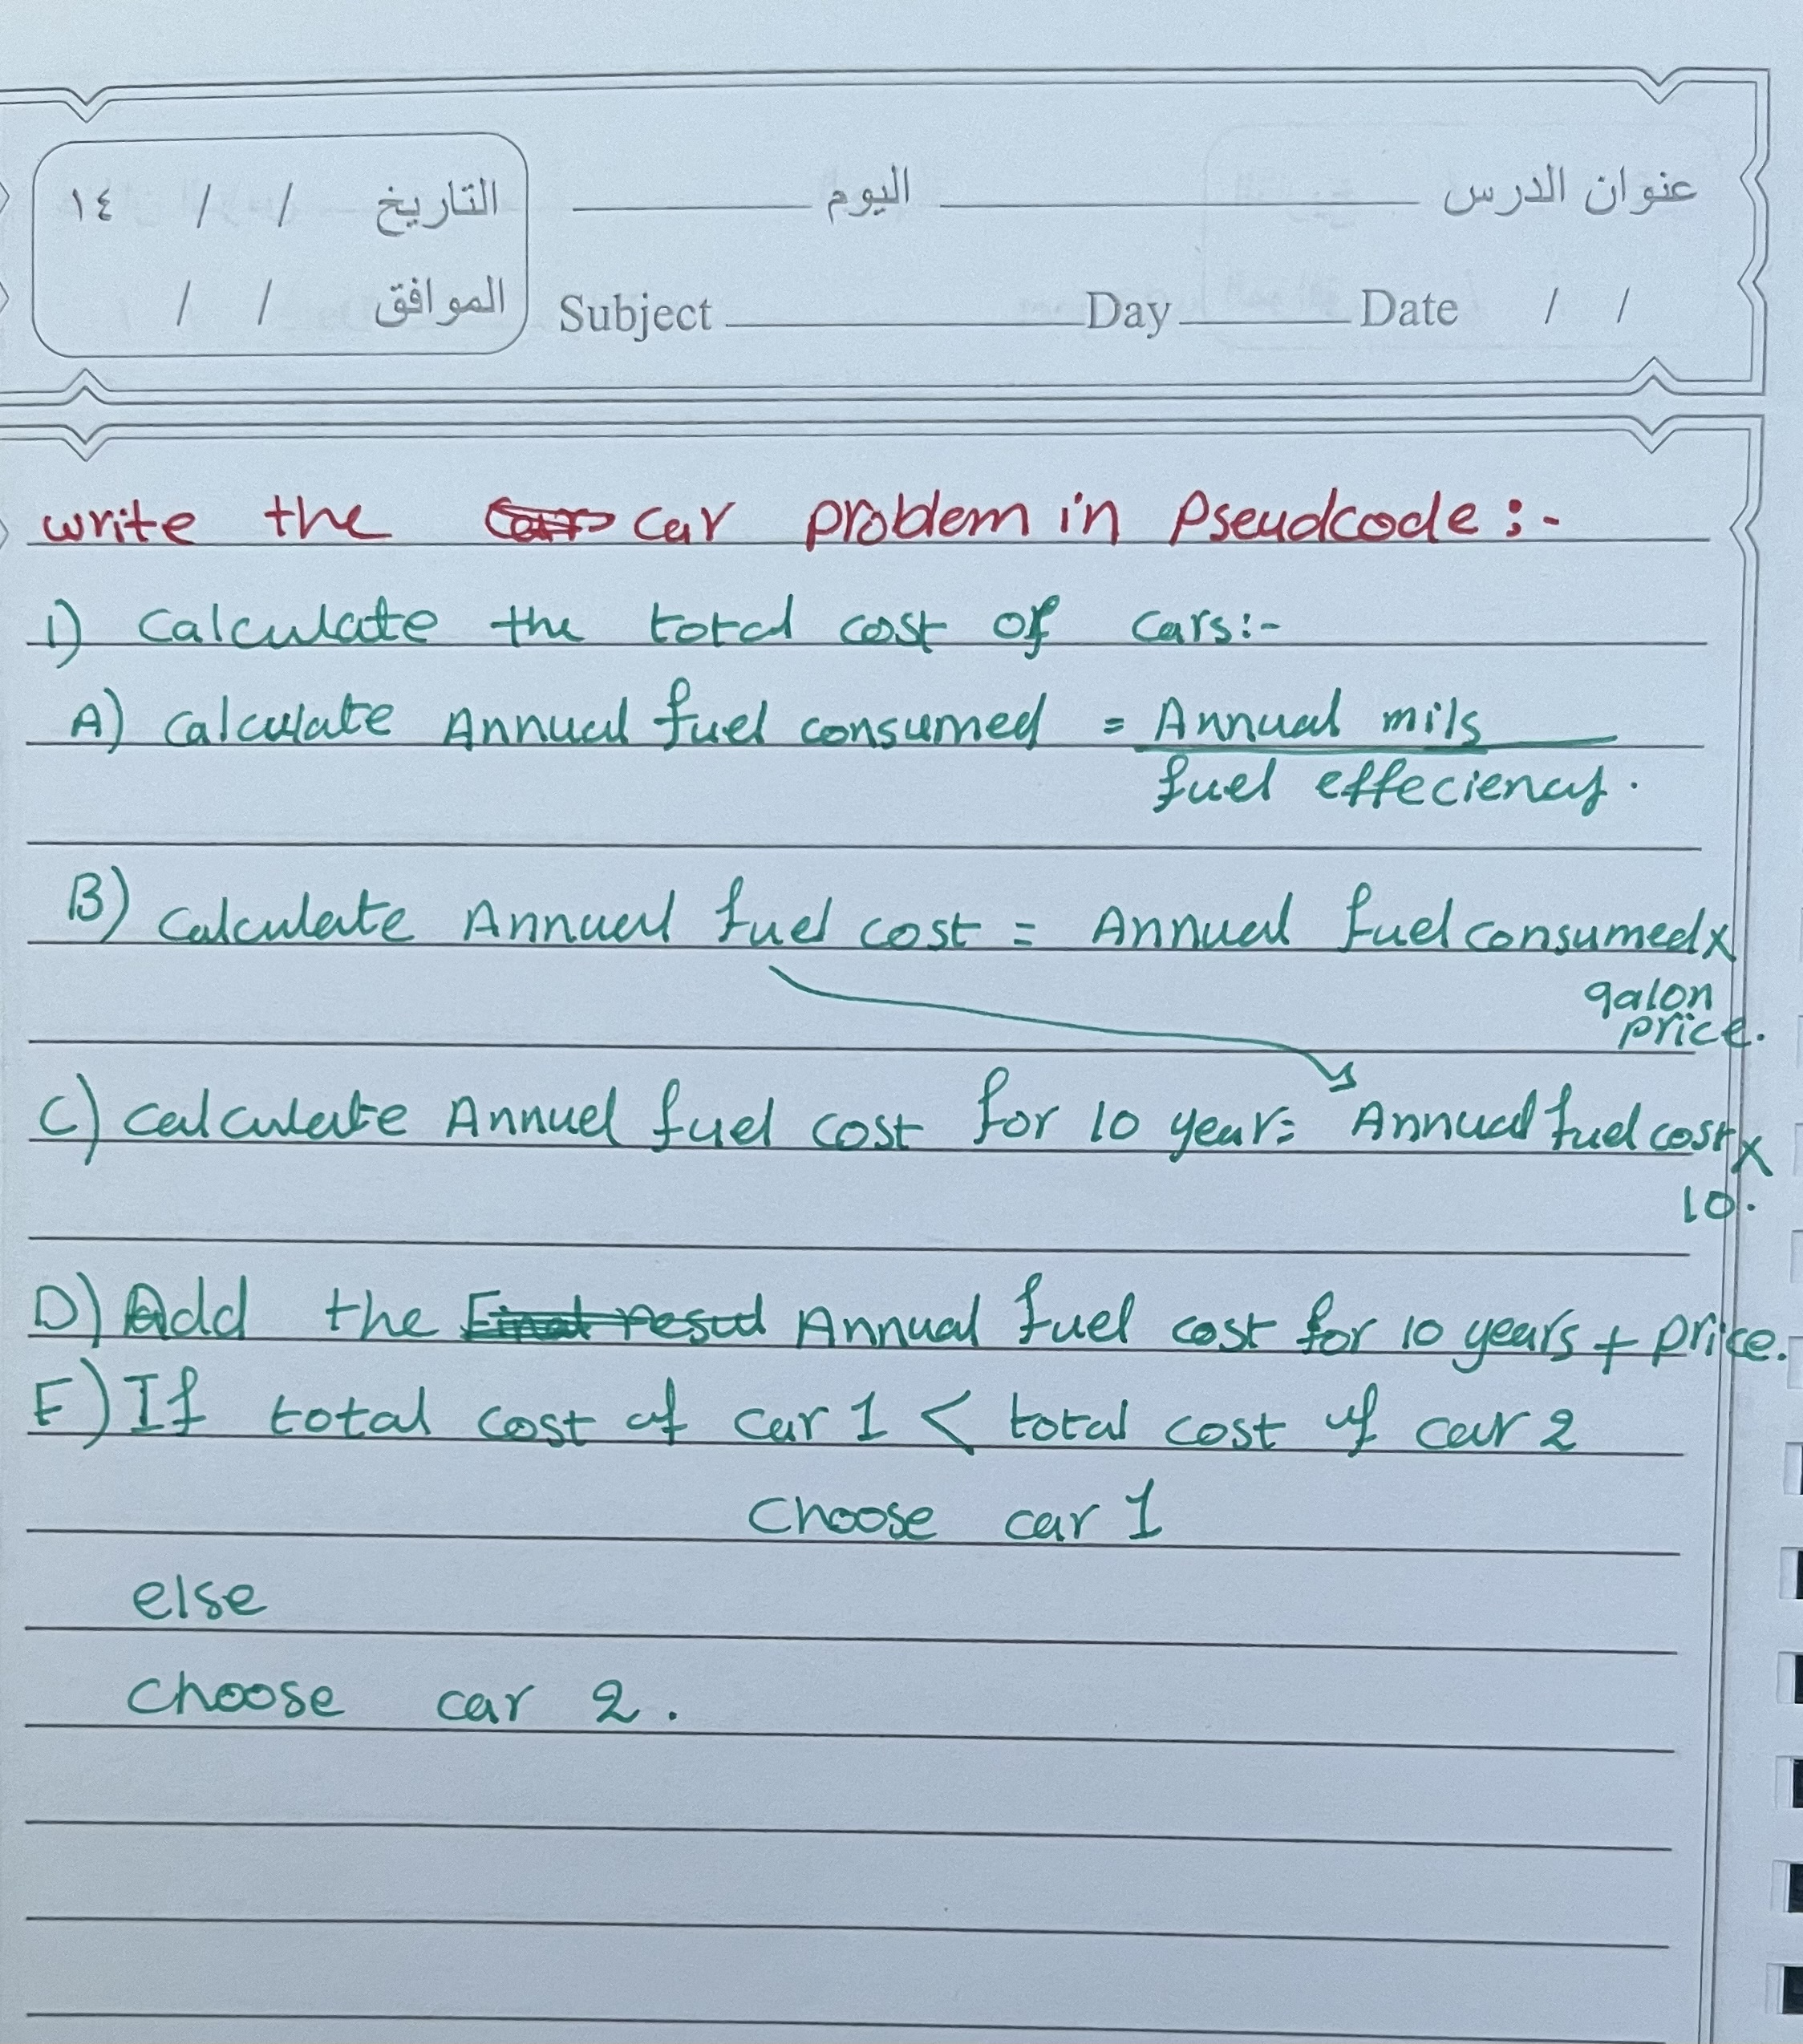 عنوان الدرس اليوم التاريخ / / ١٤
Subject Day Date / / الموافق / /
write the car problem in Pseudcode :-
1) Calculate the total cost of cars:-
A) calculate Annual fuel consumed = Annual mils
fuel effeciency.
B) calculate Annual fuel cost = Annual fuel consumed x
galon
price.
C) calculate Annuel fuel cost for 10 year = Annual fuel cost x
10.
D) Add the Annual fuel cost for 10 years + price.
E) If total cost of car 1 < total cost of car 2
Choose car 1
else
choose car 2.